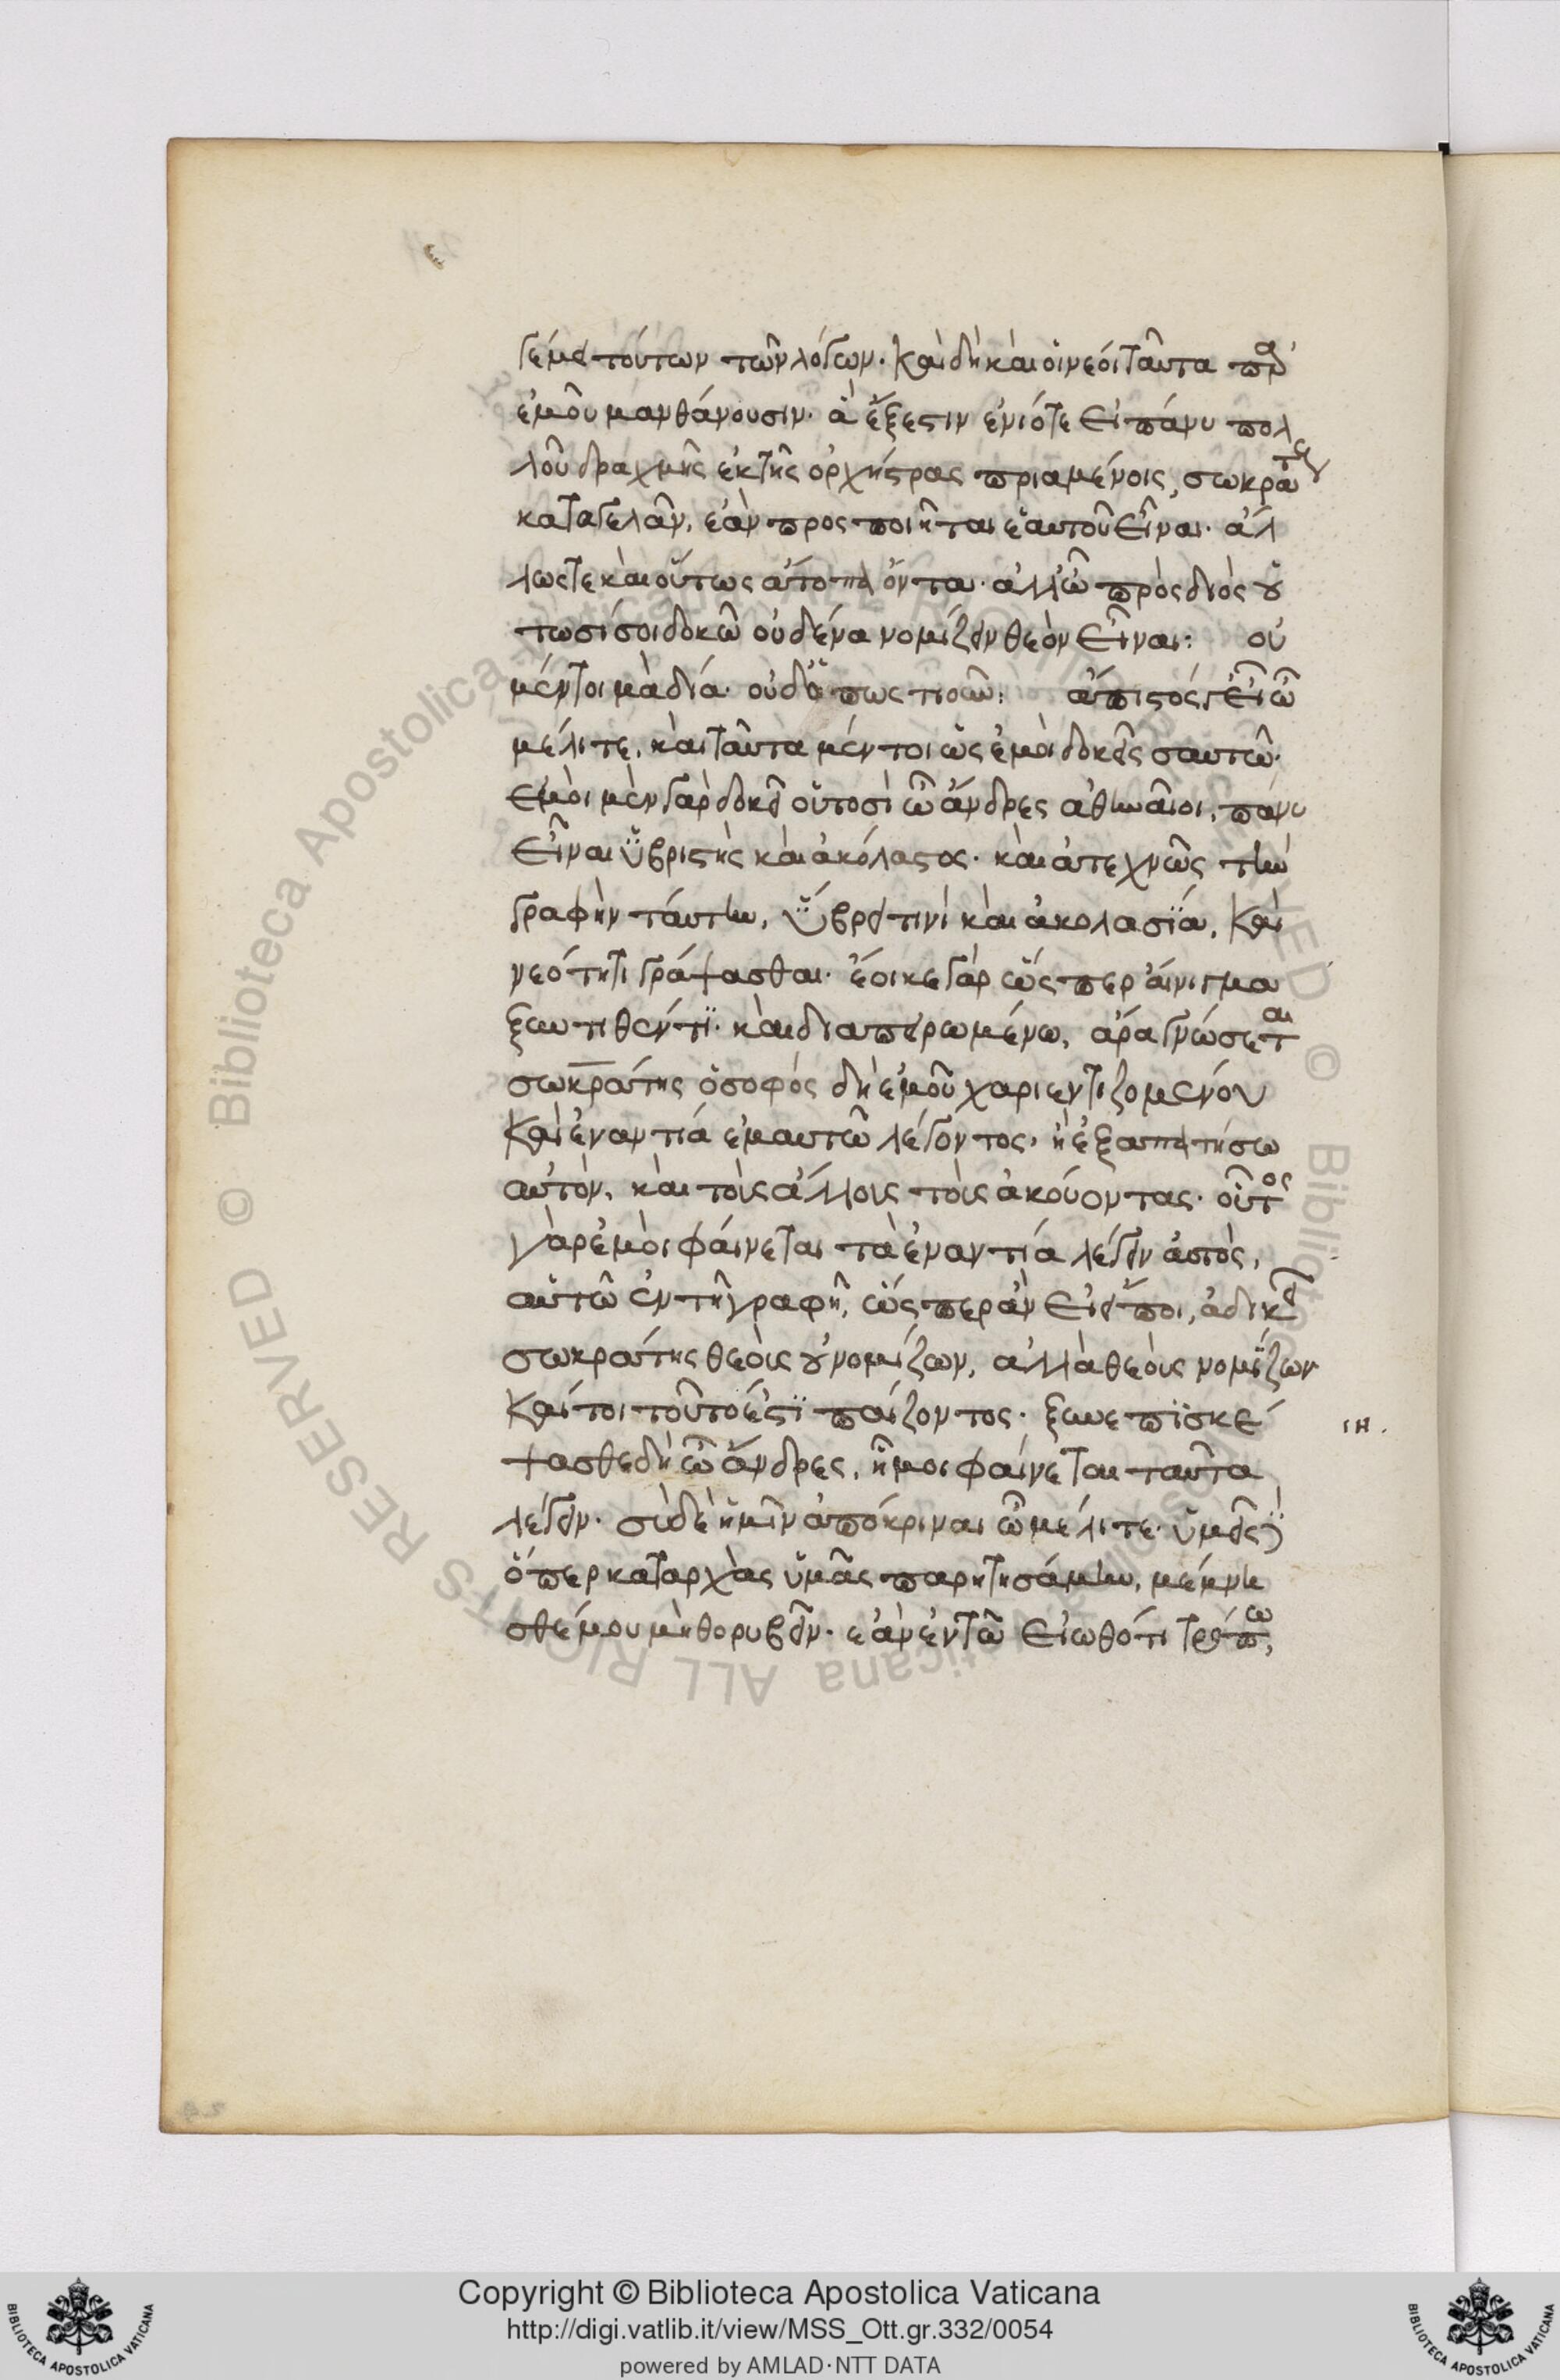 γέμει τούτων τῶν λόγων. Καὶ δὴ καὶ οἱ νέοι ταῦτα παρ'
ἐμοῦ μανθάνουσιν. ἃ ἔξεστιν ἐνίοτε εἰ πάνυ πολ
λοῦ δραχμῆς ἐκ τῆς ὀρχήστρας πριαμένοις, σωκράτους
καταγελᾶν, ἐὰν προσποιῆται ἑαυτοῦ εἶναι. ἄλ
λως τε καὶ οὕτως ἄτοπα ὄντα. ἀλλ' ὦ πρὸς διὸς οὑ
τωσί σοι δοκῶ οὐδένα νομίζειν θεὸν εἶναι: οὐ
μέντοι μὰ δία. οὐδ' ὅπως τιοῦν: ἄπιστός γ' εἶ ὦ
μέλιτε, καὶ ταῦτα μέντοι ὡς ἐμοὶ δοκεῖς σαυτῶ.
ἐμοὶ μὲν γὰρ δοκεῖ οὑτοσὶ ὦ ἄνδρες ἀθηναῖοι, πάνυ
εἶναι ὑβριστὴς καὶ ἀκόλαστος. καὶ ἀτεχνῶς τὴν
γραφὴν ταύτην, ὕβρει τινὶ καὶ ἀκολασία, Καὶ
νεότητι γράψασθαι. ἔοικε γὰρ ὥσπερ αἴνιγμα
ξυντιθέντι. καὶ διαπειρωμένω, ἆρα γνώσεται
σωκράτης ὁ σοφός δὴ ἐμοῦ χαριεντιζομένου
Καὶ ἐναντία ἐμαυτῶ λέγοντος. ἢ ἐξαπατήσω
αὐτὸν, καὶ τοὺς ἄλλους τοὺς ἀκούοντας. οὗτος
γὰρ ἐμοὶ φαίνεται τὰ ἐναντία λέγειν αὐτὸς,
αὑτῶ ἐν τῆ γραφῆ, ὥσπερ ἂν εἰ εἴποι, ἀδικεῖ
σωκράτης θεοὺς οὐ νομίζων, ἀλλὰ θεοὺς νομίζων
Καίτοι τοῦτό ἐστι παίζοντος. ξυνεπισκέ
ψασθε δὴ ὦ ἄνδρες, ἧ μοι φαίνεται ταῦτα
λέγειν. σὺ δὲ ἡμῖν ἀπόκριναι ὦ μέλιτε. ὑμεῖς δὲ
ὅπερ καταρχὰς ὑμᾶς παρητησάμην, μέμνη
σθέ μου μὴ θορυβεῖν. ἐὰν ἐν τῶ εἰωθότι τρόπω,
ιη.
Copyright © Biblioteca Apostolica Vaticana
http://digi.vatlib.it/view/MSS_Ott.gr.332/0054
powered by AMLAD·NTT DATA